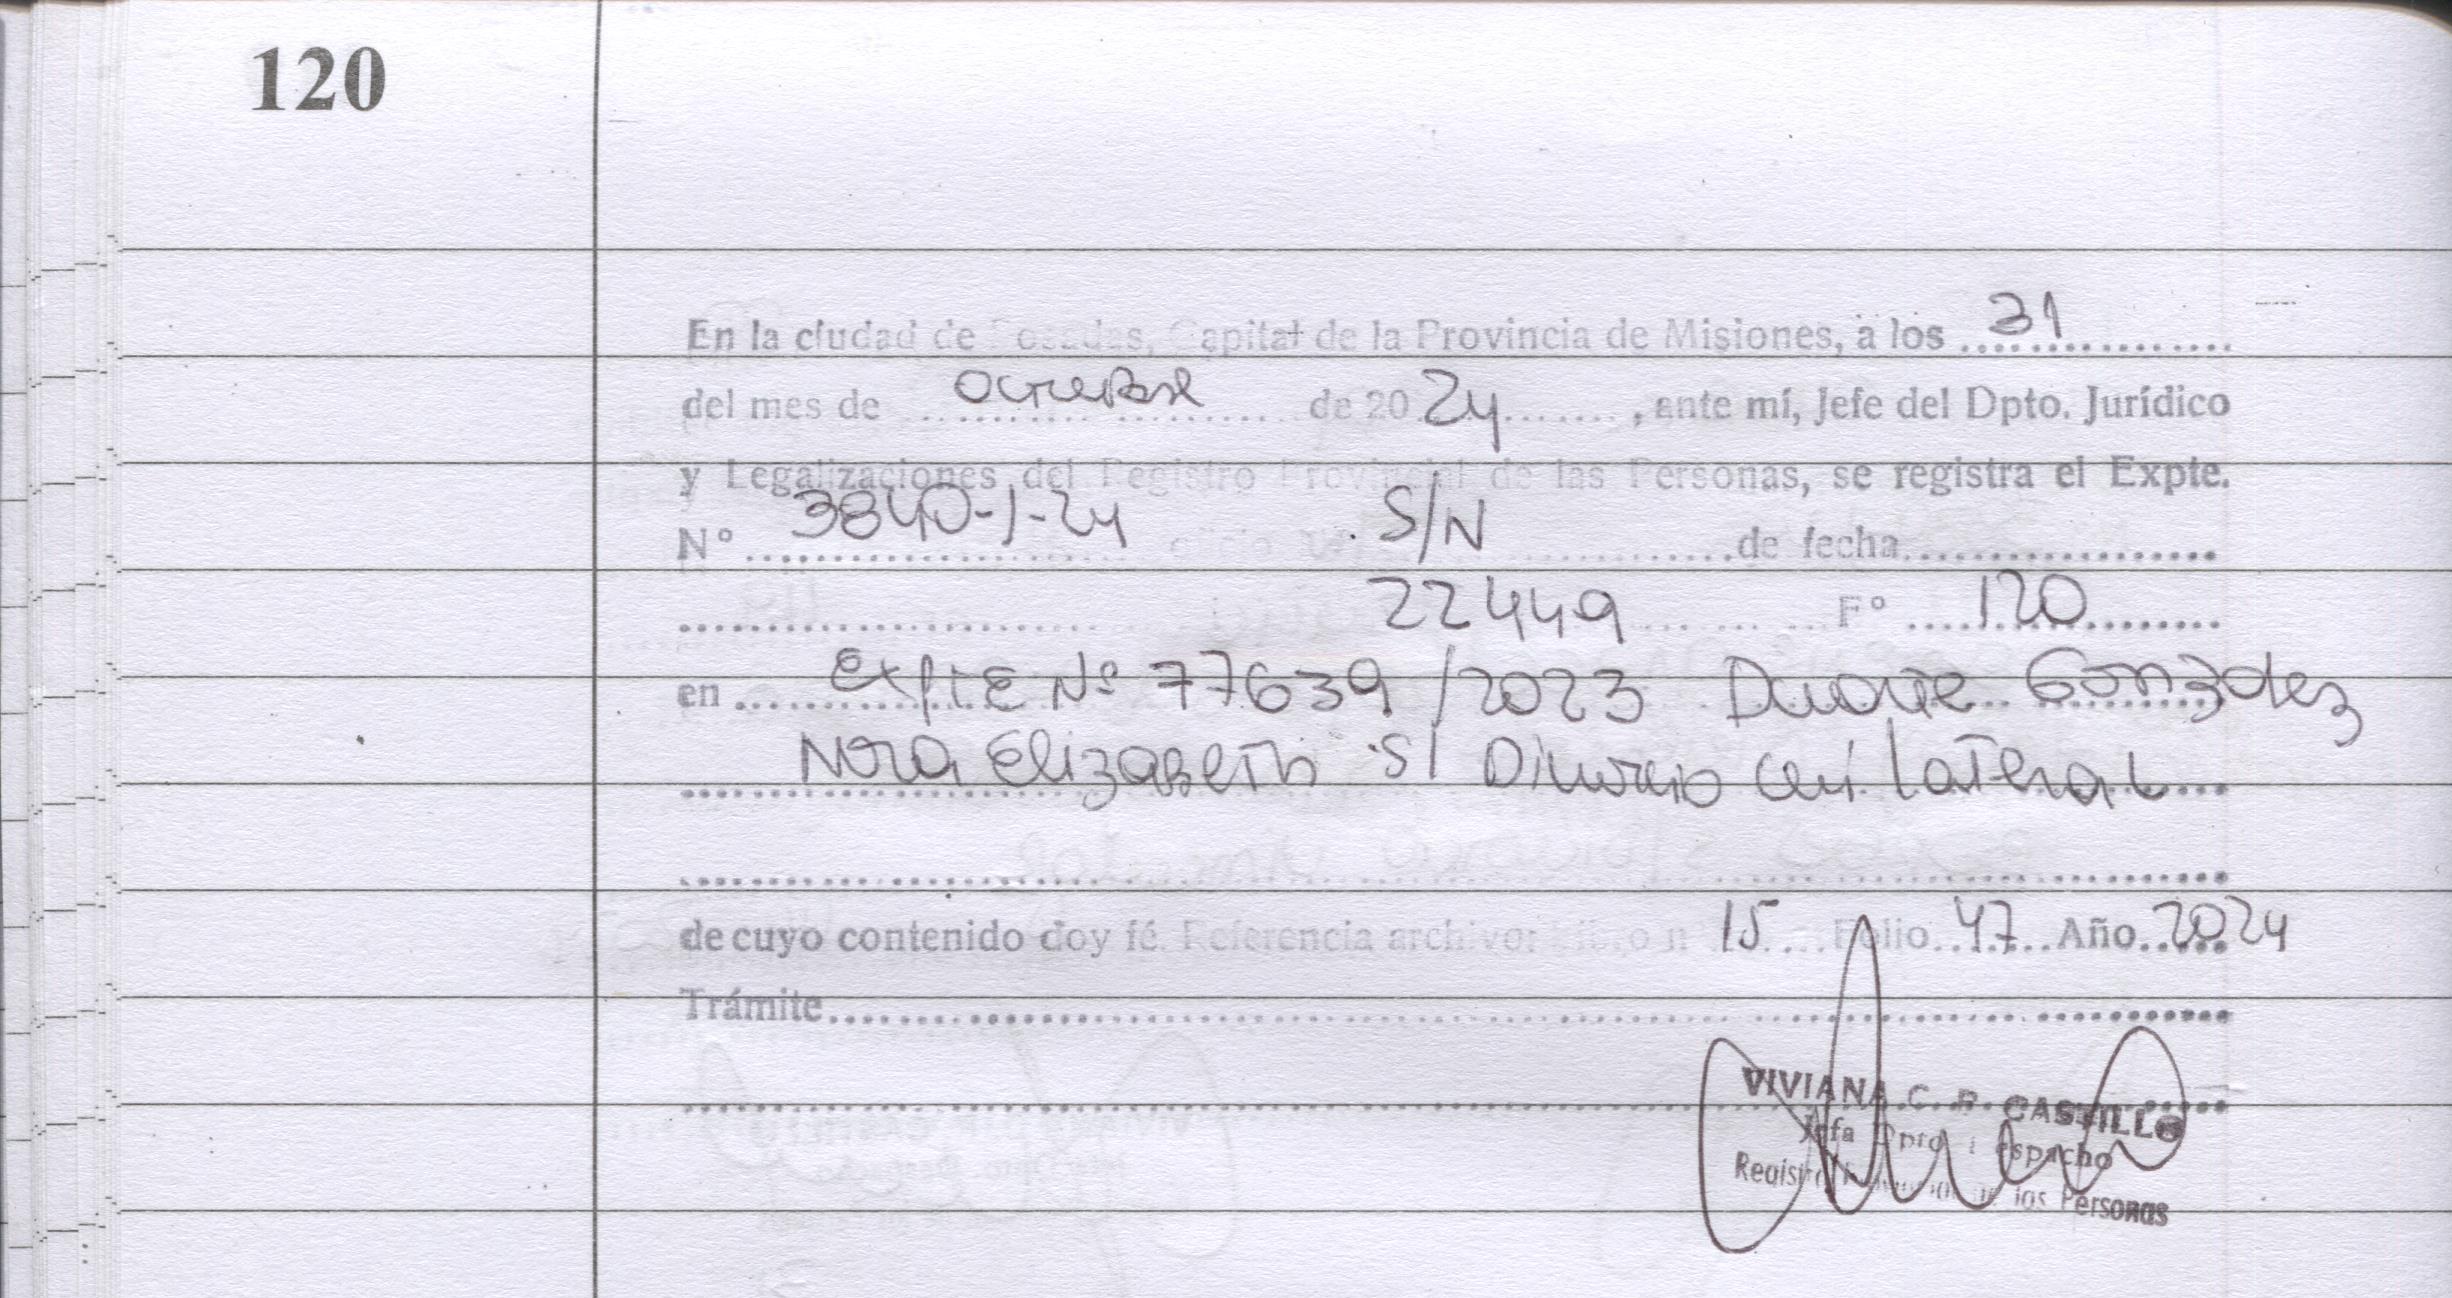 120
En la ciudad de Posadas, Capital de la Provincia de Misiones, a los 31
del mes de octubre de 2024, ante mí, Jefe del Dpto. Jurídico
y Legalizaciones del Registro Provincial de las Personas, se registra el Expte.
N° 3840-J-24 oficio S/N de fecha
22449 F° 120
en Expte Nº 77639/2023 Duarte Gonzalez
Nora Elizabeth S/ Divorcio unilateral
de cuyo contenido doy fé. Referencia archivo: libro n° 15 Folio 47 Año 2024
Trámite
VIVIANA C. R. CASTILLO
Jefa Dpto. Despacho
Registro Provincial de las Personas